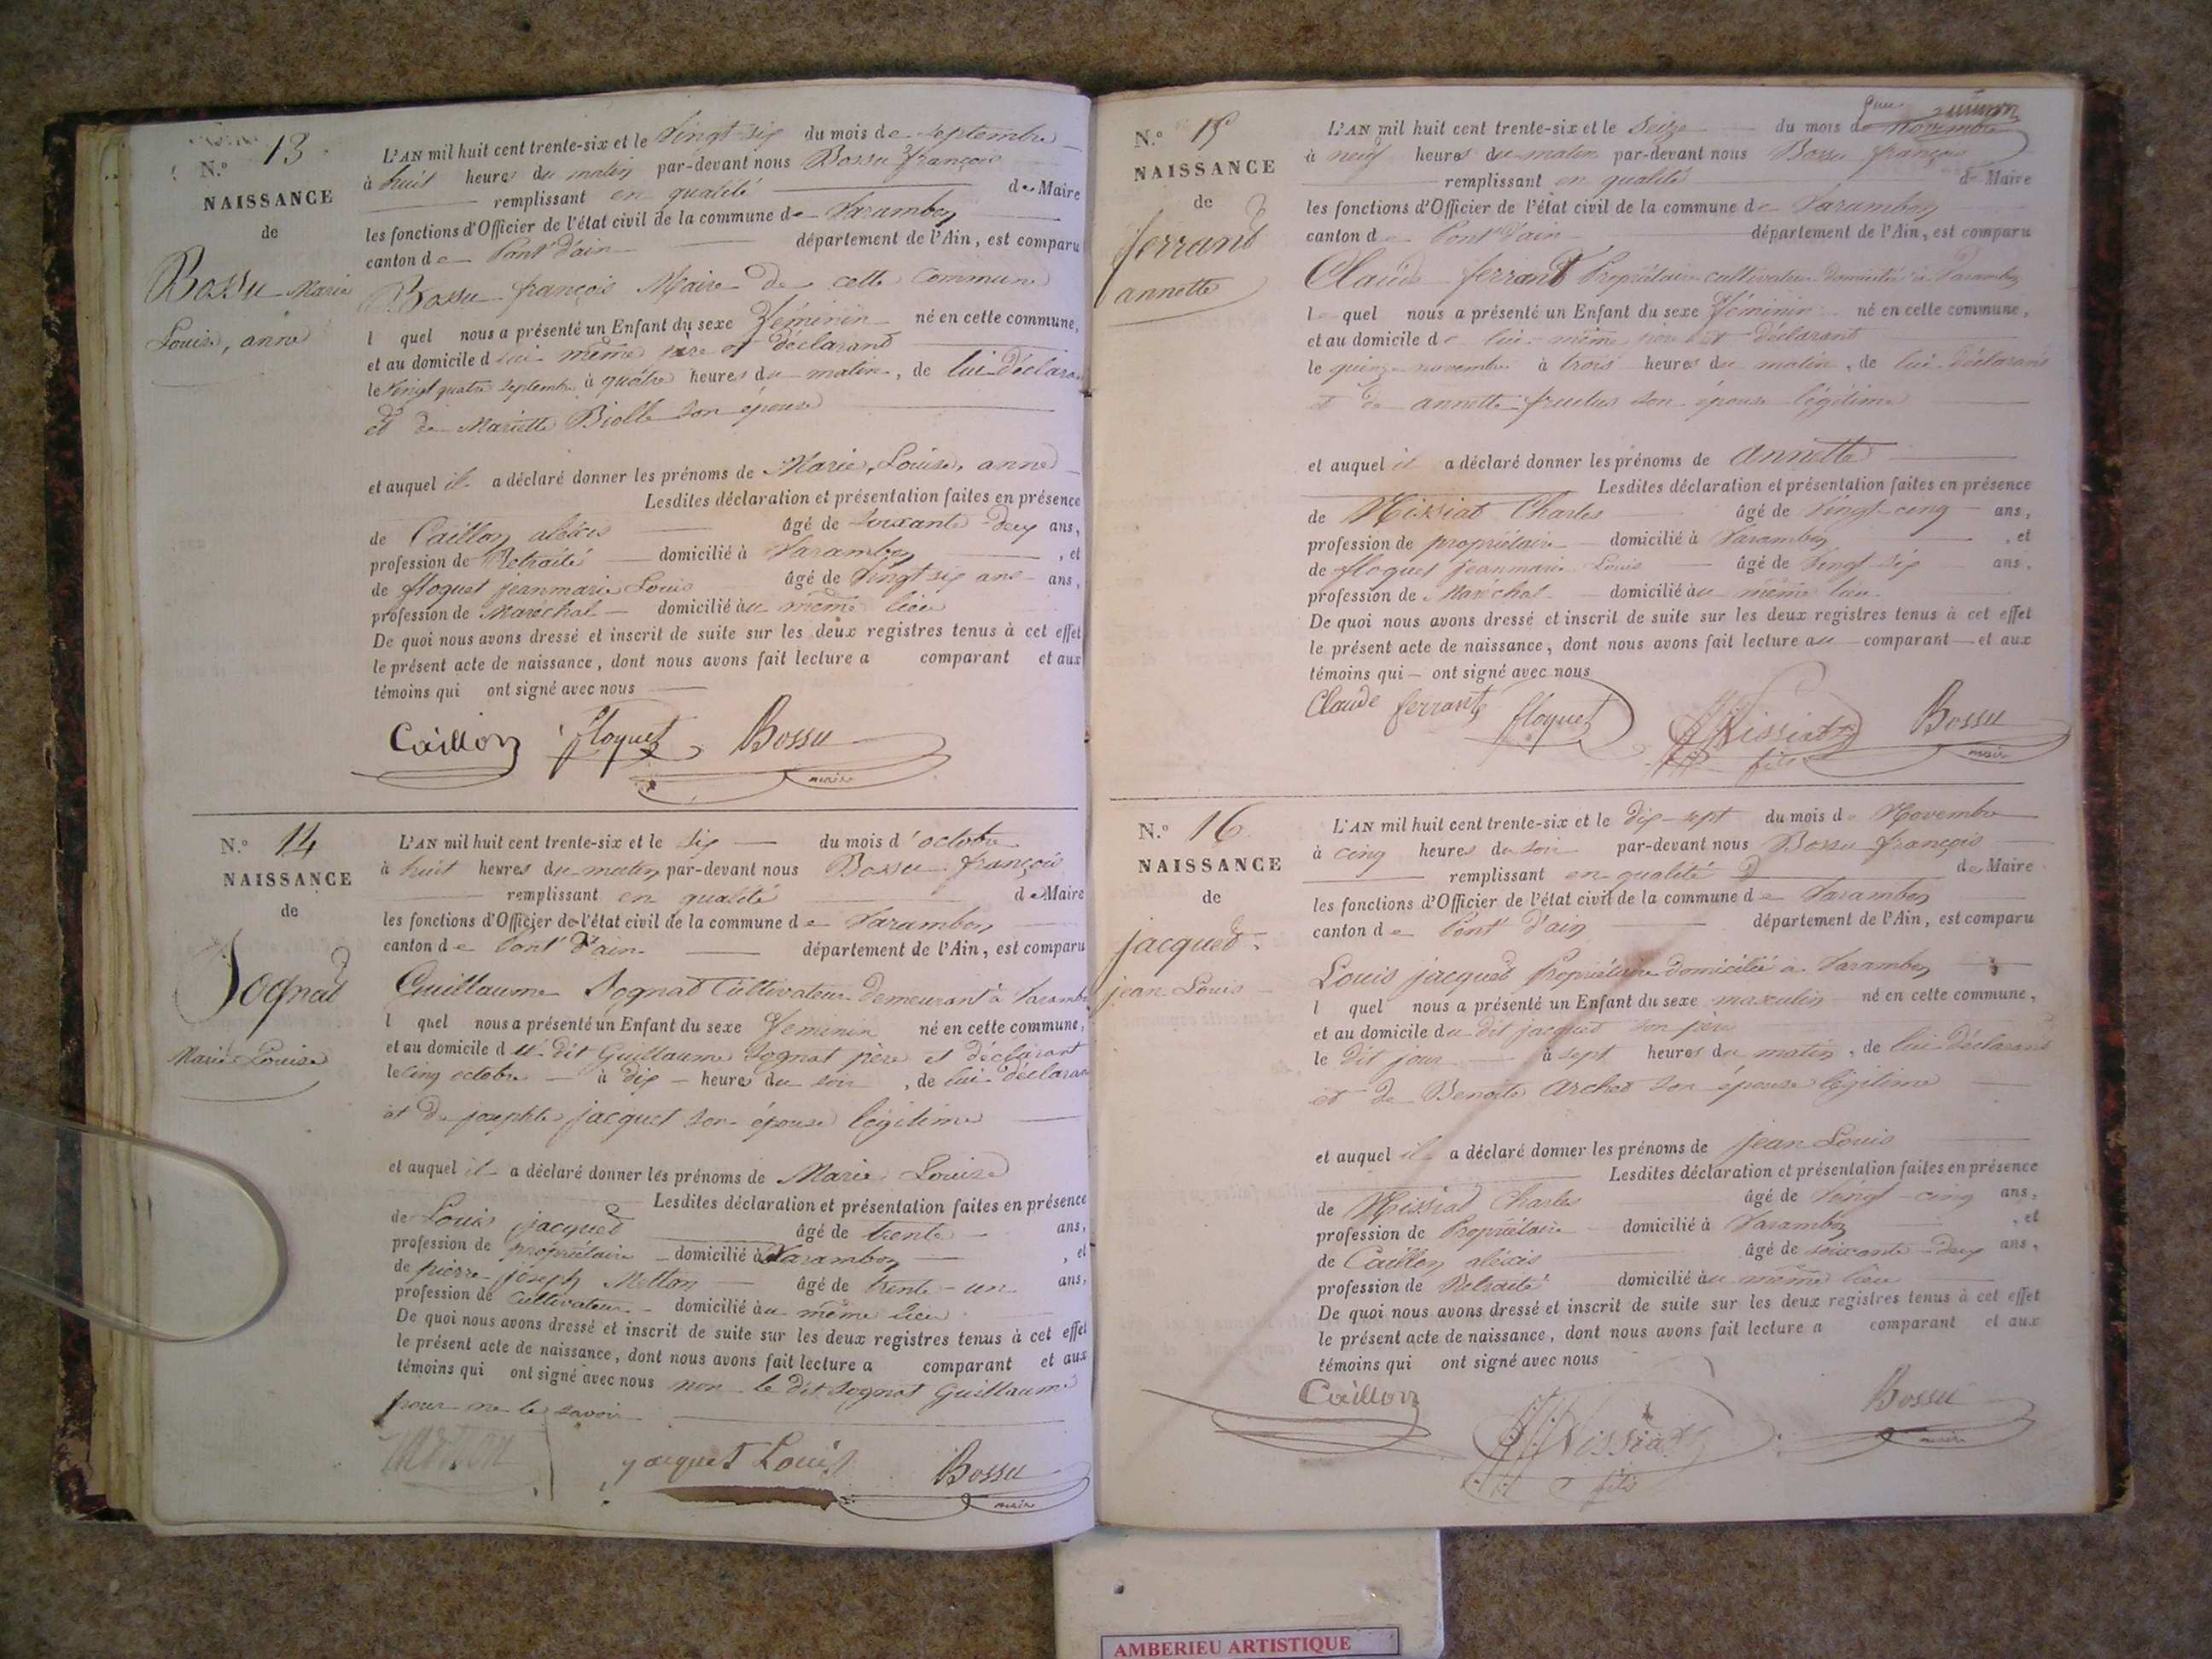 N.º 13
NAISSANCE
de
Bossu Marie
Louise, anne
L'AN mil huit cent trente-six et le vingt-six du mois de septembre
à huit heures du matin par-devant nous Bossu françois
remplissant en qualité de Maire
les fonctions d'Officier de l'état civil de la commune de Varambon
canton de Pont d'ain département de l'Ain, est comparu
Bossu françois Maire de cette commune
l quel nous a présenté un Enfant du sexe féminin né en cette commune,
et au domicile d lui même père et déclarant
le vingt quatre septembre à quatre heures du matin, de lui déclarant
et de Mariette Biolle son épouse
et auquel il a déclaré donner les prénoms de Marie, Louise, anne
Lesdites déclaration et présentation faites en présence
de Caillon aléxis âgé de soixante-deux ans,
profession de Retraité domicilié à Varambon, et
de floquet jeanmarie Louis âgé de vingt six ans ans,
profession de Maréchal domicilié au même lieu
De quoi nous avons dressé et inscrit de suite sur les deux registres tenus à cet effet
le présent acte de naissance, dont nous avons fait lecture a comparant et aux
témoins qui ont signé avec nous
Caillon floquet Bossu
maire
N.º 14
NAISSANCE
de
Sognat
Marie Louise
L'AN mil huit cent trente-six et le six du mois d'octobre
à huit heures du matin par-devant nous Bossu françois
remplissant en qualité de Maire
les fonctions d'Officier de l'état civil de la commune de Varambon
canton de Pont d'ain département de l'Ain, est comparu
Guillaume Sognat Cultivateur demeurant à Varambon
l quel nous a présenté un Enfant du sexe féminin né en cette commune,
et au domicile du dit Guillaume Sognat père et déclarant
le cinq octobre à dix heures du soir, de lui déclarant
et de josephte jacquet son épouse légitime
et auquel il a déclaré donner les prénoms de Marie Louise
Lesdites déclaration et présentation faites en présence
de Louis jacquet âgé de trente ans,
profession de propriétaire domicilié à Varambon, et
de pierre joseph Metton âgé de trente-un ans,
profession de Cultivateur domicilié au même lieu
De quoi nous avons dressé et inscrit de suite sur les deux registres tenus à cet effet
le présent acte de naissance, dont nous avons fait lecture a comparant et aux
témoins qui ont signé avec nous non le dit Sognat Guillaume
pour ne le savoir
Metton jacquet Louis Bossu
maire
N.º 15
NAISSANCE
de
ferrand
annette
L'AN mil huit cent trente-six et le seize du mois de novembre
à neuf heures du matin par-devant nous Bossu françois
remplissant en qualité de Maire
les fonctions d'Officier de l'état civil de la commune de Varambon
canton de Pont d'ain département de l'Ain, est comparu
Claude ferrand Propriétaire cultivateur domicilié à Varambon
le quel nous a présenté un Enfant du sexe féminin né en cette commune,
et au domicile de lui même père et déclarant
le quinze novembre à trois heures du matin, de lui déclarant
et de annette fructus son épouse légitime
et auquel il a déclaré donner les prénoms de annette
Lesdites déclaration et présentation faites en présence
de Missiat Charles âgé de vingt-cinq ans,
profession de propriétaire domicilié à Varambon, et
de floquet jeanmarie Louis âgé de vingt six ans,
profession de Maréchal domicilié au même lieu
De quoi nous avons dressé et inscrit de suite sur les deux registres tenus à cet effet
le présent acte de naissance, dont nous avons fait lecture au comparant et aux
témoins qui ont signé avec nous
Claude ferrand floquet Missiat Bossu
fils maire
N.º 16
NAISSANCE
de
jacquet
jean Louis
L'AN mil huit cent trente-six et le dix-sept du mois de Novembre
à cinq heures du soir par-devant nous Bossu françois
remplissant en qualité de Maire
les fonctions d'Officier de l'état civil de la commune de Varambon
canton de Pont d'ain département de l'Ain, est comparu
Louis jacquet Propriétaire domicilié à Varambon
l quel nous a présenté un Enfant du sexe masculin né en cette commune,
et au domicile du dit jacquet son père
le dit jour à sept heures du matin, de lui déclarant
et de Benoite Archet son épouse légitime
et auquel il a déclaré donner les prénoms de jean Louis
Lesdites déclaration et présentation faites en présence
de Missiat Charles âgé de vingt-cinq ans,
profession de Propriétaire domicilié à Varambon, et
de Caillon aléxis âgé de soixante-deux ans,
profession de Retraité domicilié au même lieu
De quoi nous avons dressé et inscrit de suite sur les deux registres tenus à cet effet
le présent acte de naissance, dont nous avons fait lecture a comparant et aux
témoins qui ont signé avec nous
Caillon Missiat Bossu
fils maire
AMBERIEU ARTISTIQUE